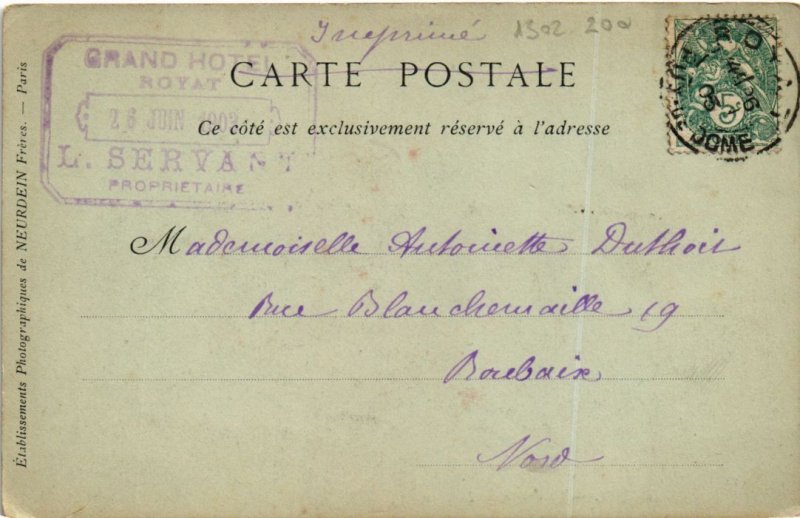 Imprimé
1302 200
GRAND HOTEL
ROYAT
26 JUIN 1903
L. SERVANT
PROPRIETAIRE
CARTE POSTALE
Ce côté est exclusivement réservé à l'adresse
DOME
Mademoiselle Antoinette Duthoit
Rue Blanchemaille 19
Roubaix
Nord
Établissements Photographiques de NEURDEIN Frères. — Paris